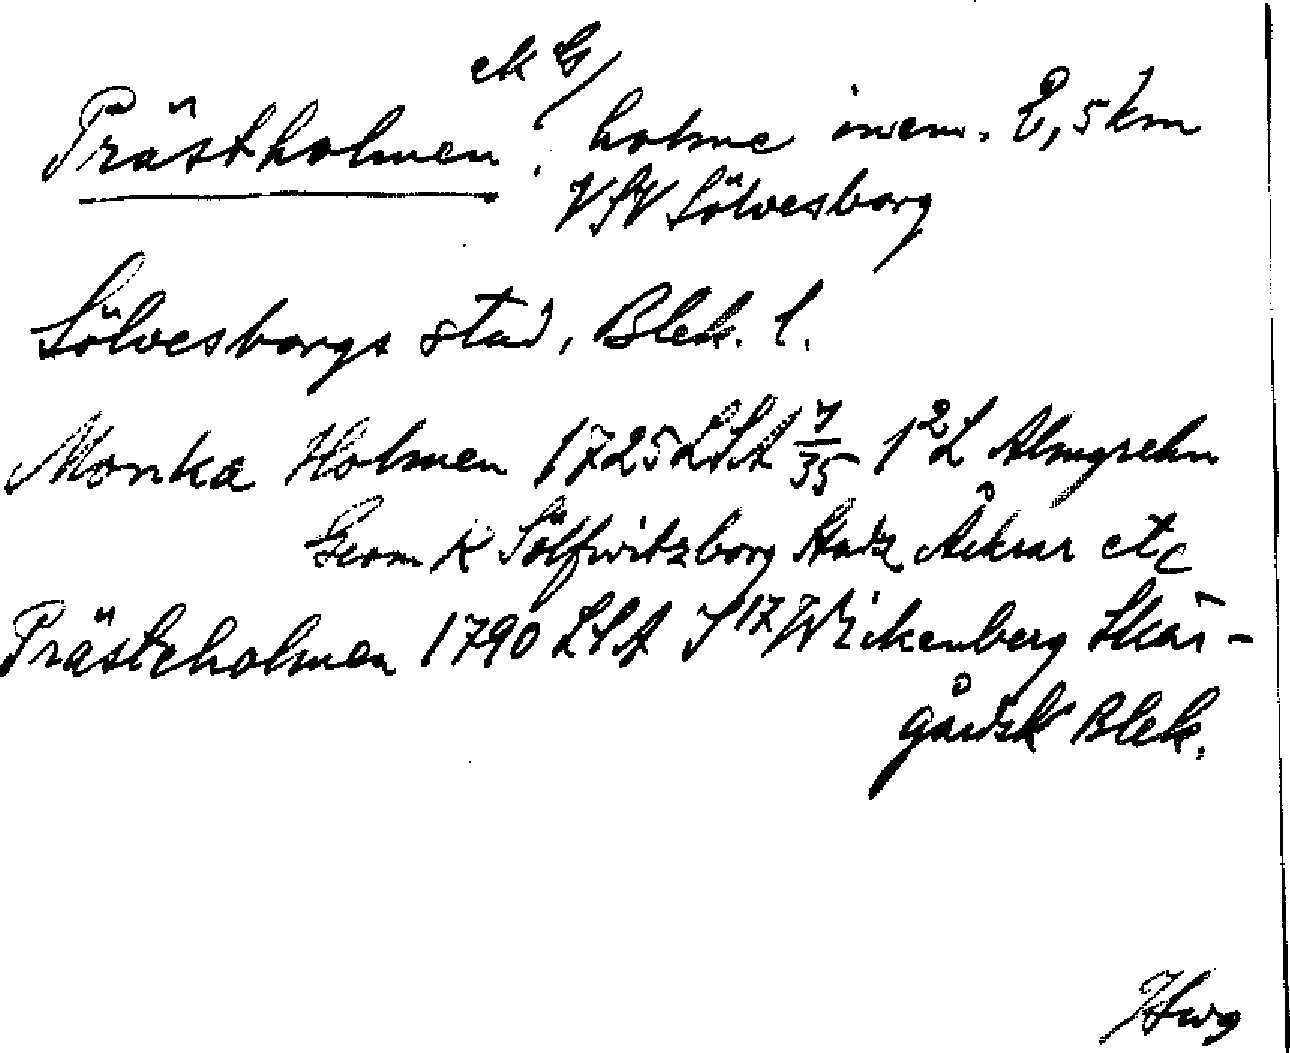 ek G/
Prästholmen: holme inem. 2,5 km
VSV Sölvesborg
Sölvesborgs stad, Blek. l.
Monka Holmen 1725 LSA 7/35 1²L Almgrehn
Geom K Sölfwitzborg Stadz Åkrar etc
Prästeholmen 1790 LSA S17 Wickenberg Skär-
gårdsk Blek.